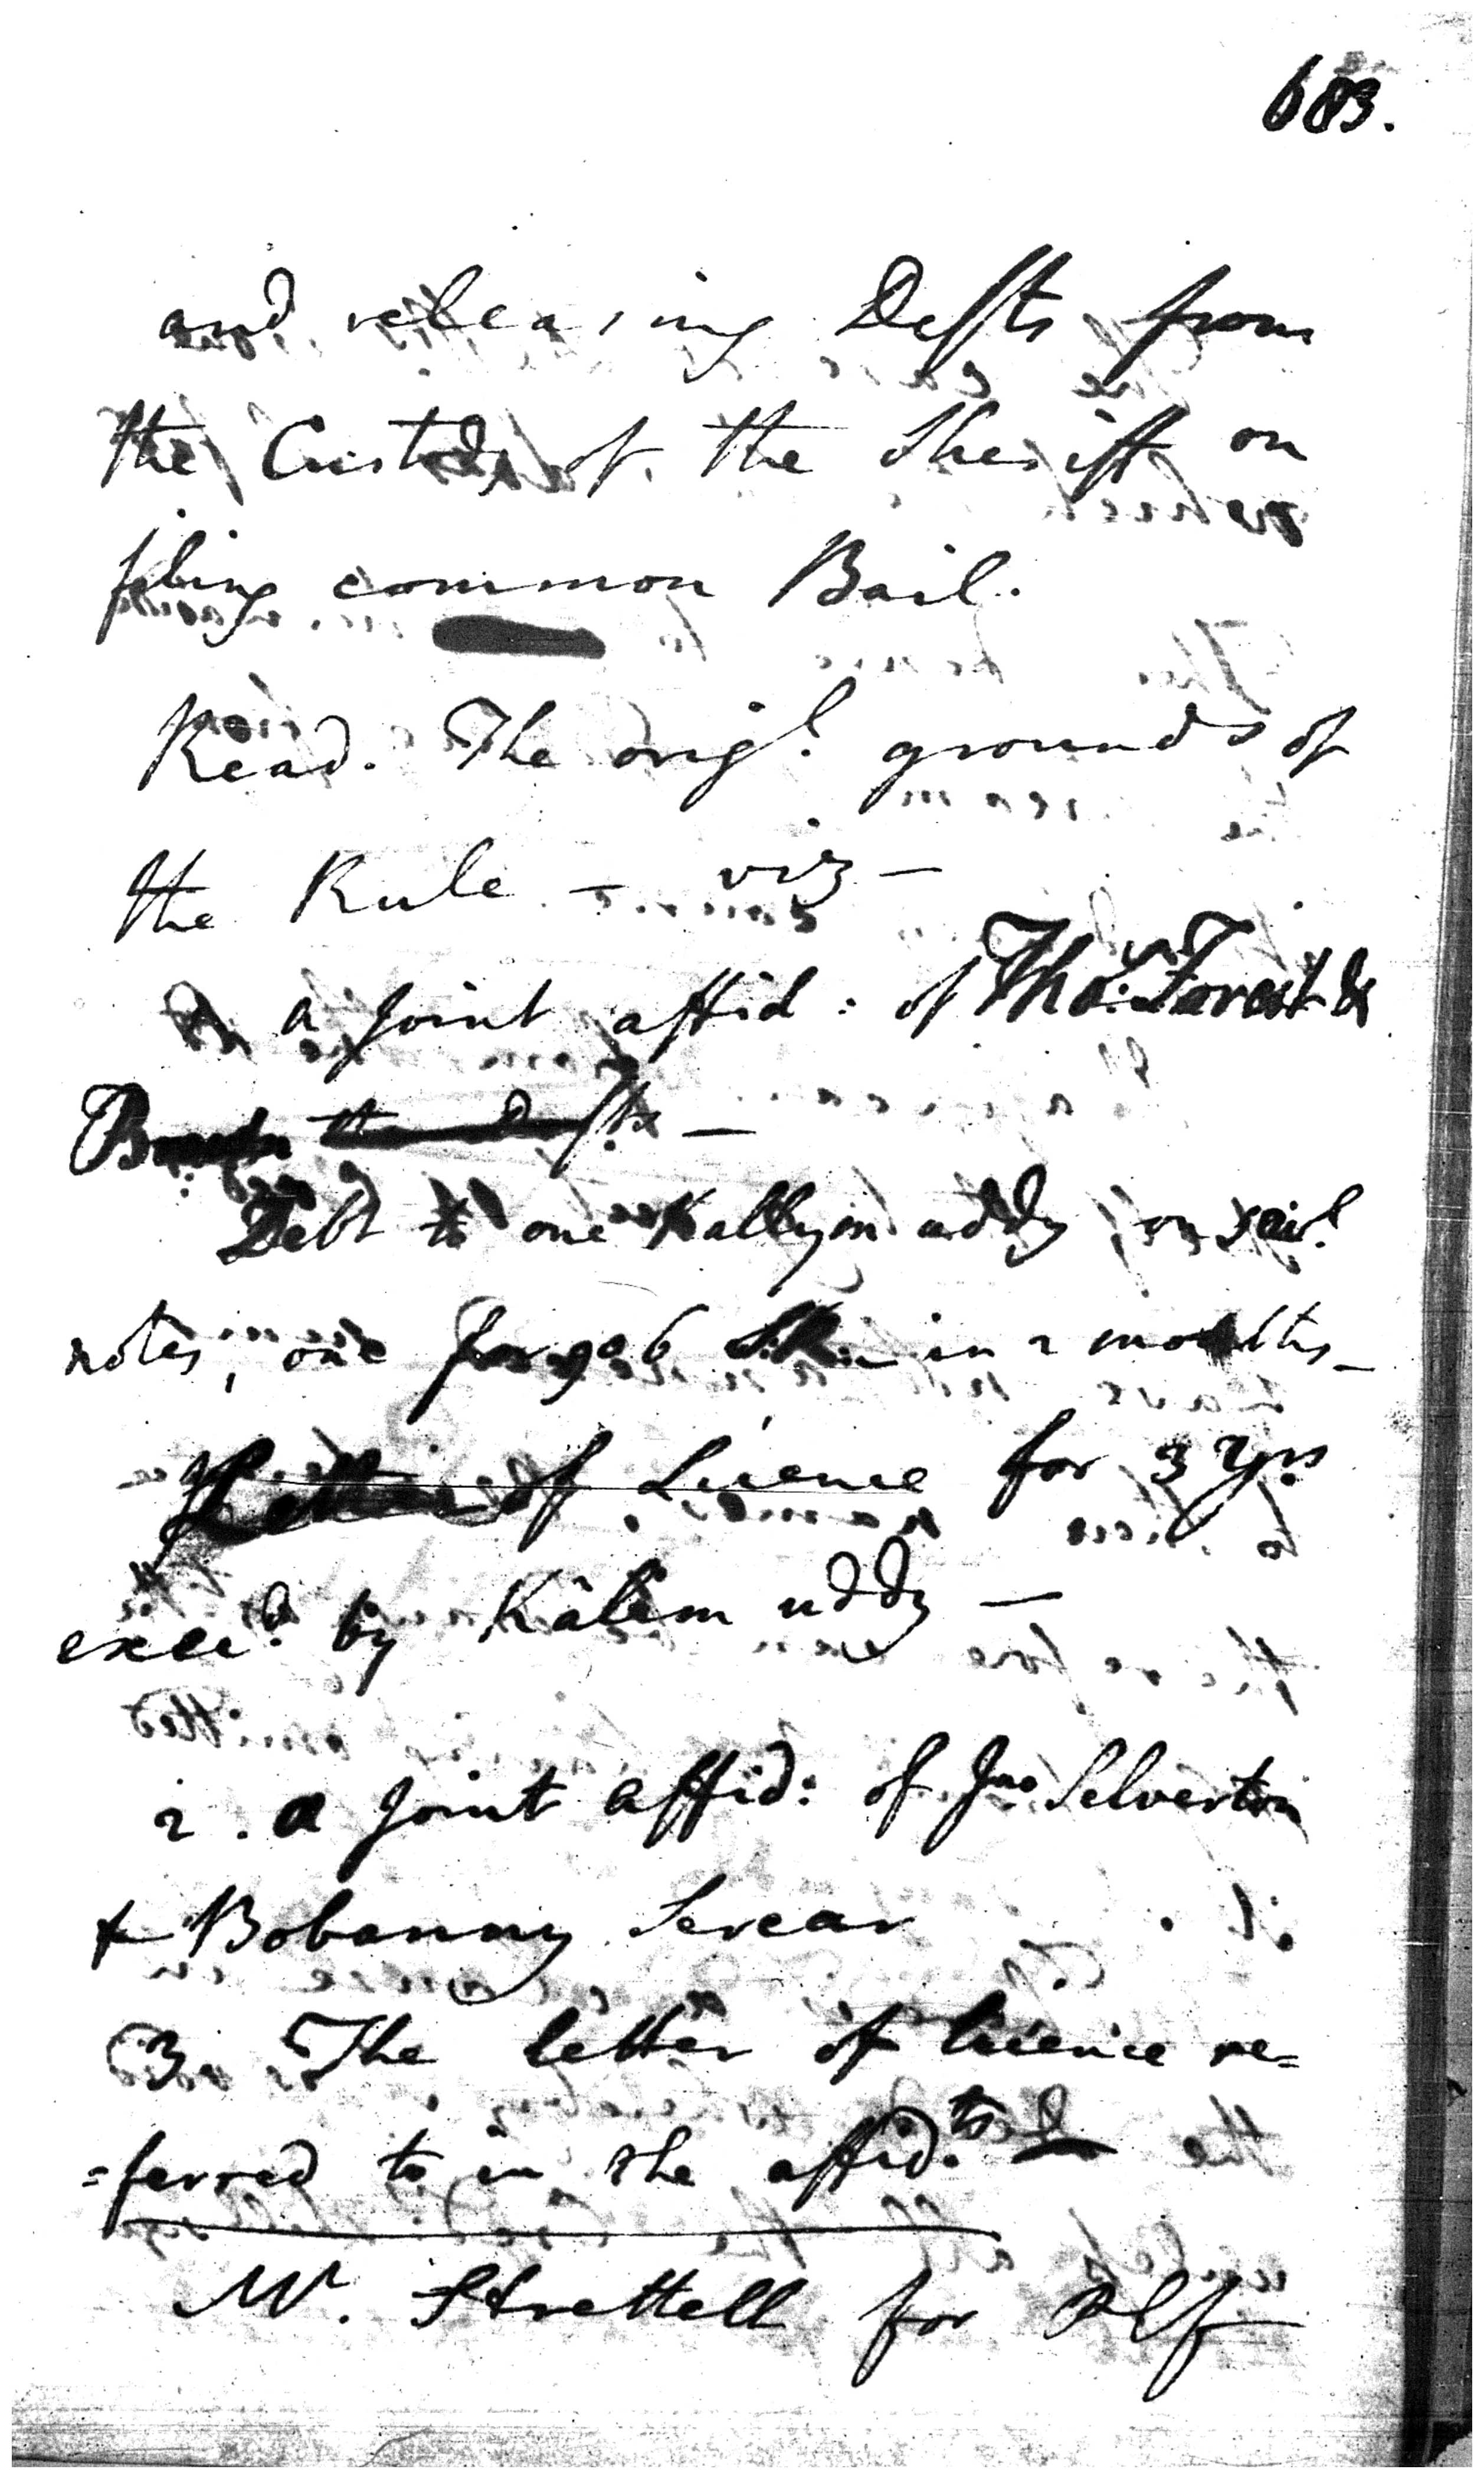 683.
and releasing Defts from
the Custody of the Sheriff on
filing common Bail.
Read. The origl. grounds of
the Rule — viz —
a joint affid: of Thos. Forest &
the Defts —
Debt to one Kallymuddy on sevl.
notes, one for 906 S.R. in 2 months —
Letter of Licence for 3 yrs
execd. by Kâlimuddy —
2. a joint affid: of Jno Selverton
& Bobanny Sercar
3 The letter of licence re=
=ferred to in the affid.ts
Mr. Strettell for Plf